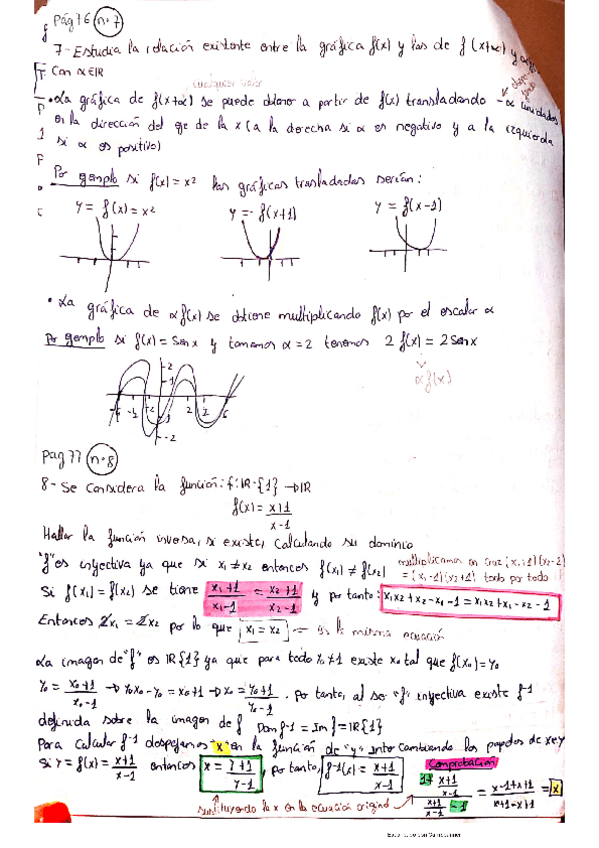 Pág 76 n·7
7- Estudia la relación existente entre la gráfica f(x) y las de f(x+α) y αf(x)
Con α∈IR
cualquier valor
• La gráfica de f(x+α) se puede obtener a partir de f(x) transladando -α unidades
en la dirección del eje de la x (a la derecha si α es negativo y a la izquierda
si α es positivo)
Por ejemplo si f(x)=x² las gráficas trasladadas serían:
y = f(x) = x² y = f(x+1) y = f(x-1)
• La gráfica de αf(x) se obtiene multiplicando f(x) por el escalar α
Por ejemplo si f(x)= Senx y tomamos α=2 tenemos 2 f(x) = 2 Senx
αf(x)
pag 77 n·8
8- Se considera la función: f: IR-{1} → IR
f(x)= x+1/x-1
Hallar la función inversa, si existe, calculando su dominio
"f" es inyectiva ya que si x₁ ≠ x₂ entonces f(x₁) ≠ f(x₂) multiplicamos en cruz (x₁+1)(x₂-1)
= (x₁-1)(x₂+1) tanto por todo
Si f(x₁)=f(x₂) se tiene x₁+1/x₁-1 = x₂+1/x₂-1 y por tanto: x₁x₂+x₂-x₁-1=x₁x₂+x₁-x₂-1
Entonces 2x₁ = 2x₂ por lo que x₁=x₂ es la misma ecuación
La imagen de "f" es IR{1} ya que para todo y₀≠1 existe x₀ tal que f(x₀)=y₀
y₀= x₀+1/x₀-1 → y₀x₀-y₀ = x₀+1 → x₀= y₀+1/y₀-1 . Por tanto, al ser "f" inyectiva existe f⁻¹
definida sobre la imagen de f Dom f⁻¹ = Im f = IR{1}
Para calcular f⁻¹ despejamos "x" en la función de "y" intercambiando los papeles de x e y
Si y = f(x)= x+1/x-1 entonces x = y+1/y-1 , por tanto, f⁻¹(x)= x+1/x-1
Comprobación
1+ x+1/x-1 / x+1/x-1 -1 = x-1+x+1/x+1-x+1 = x
sustituyendo la x en la ecuación original